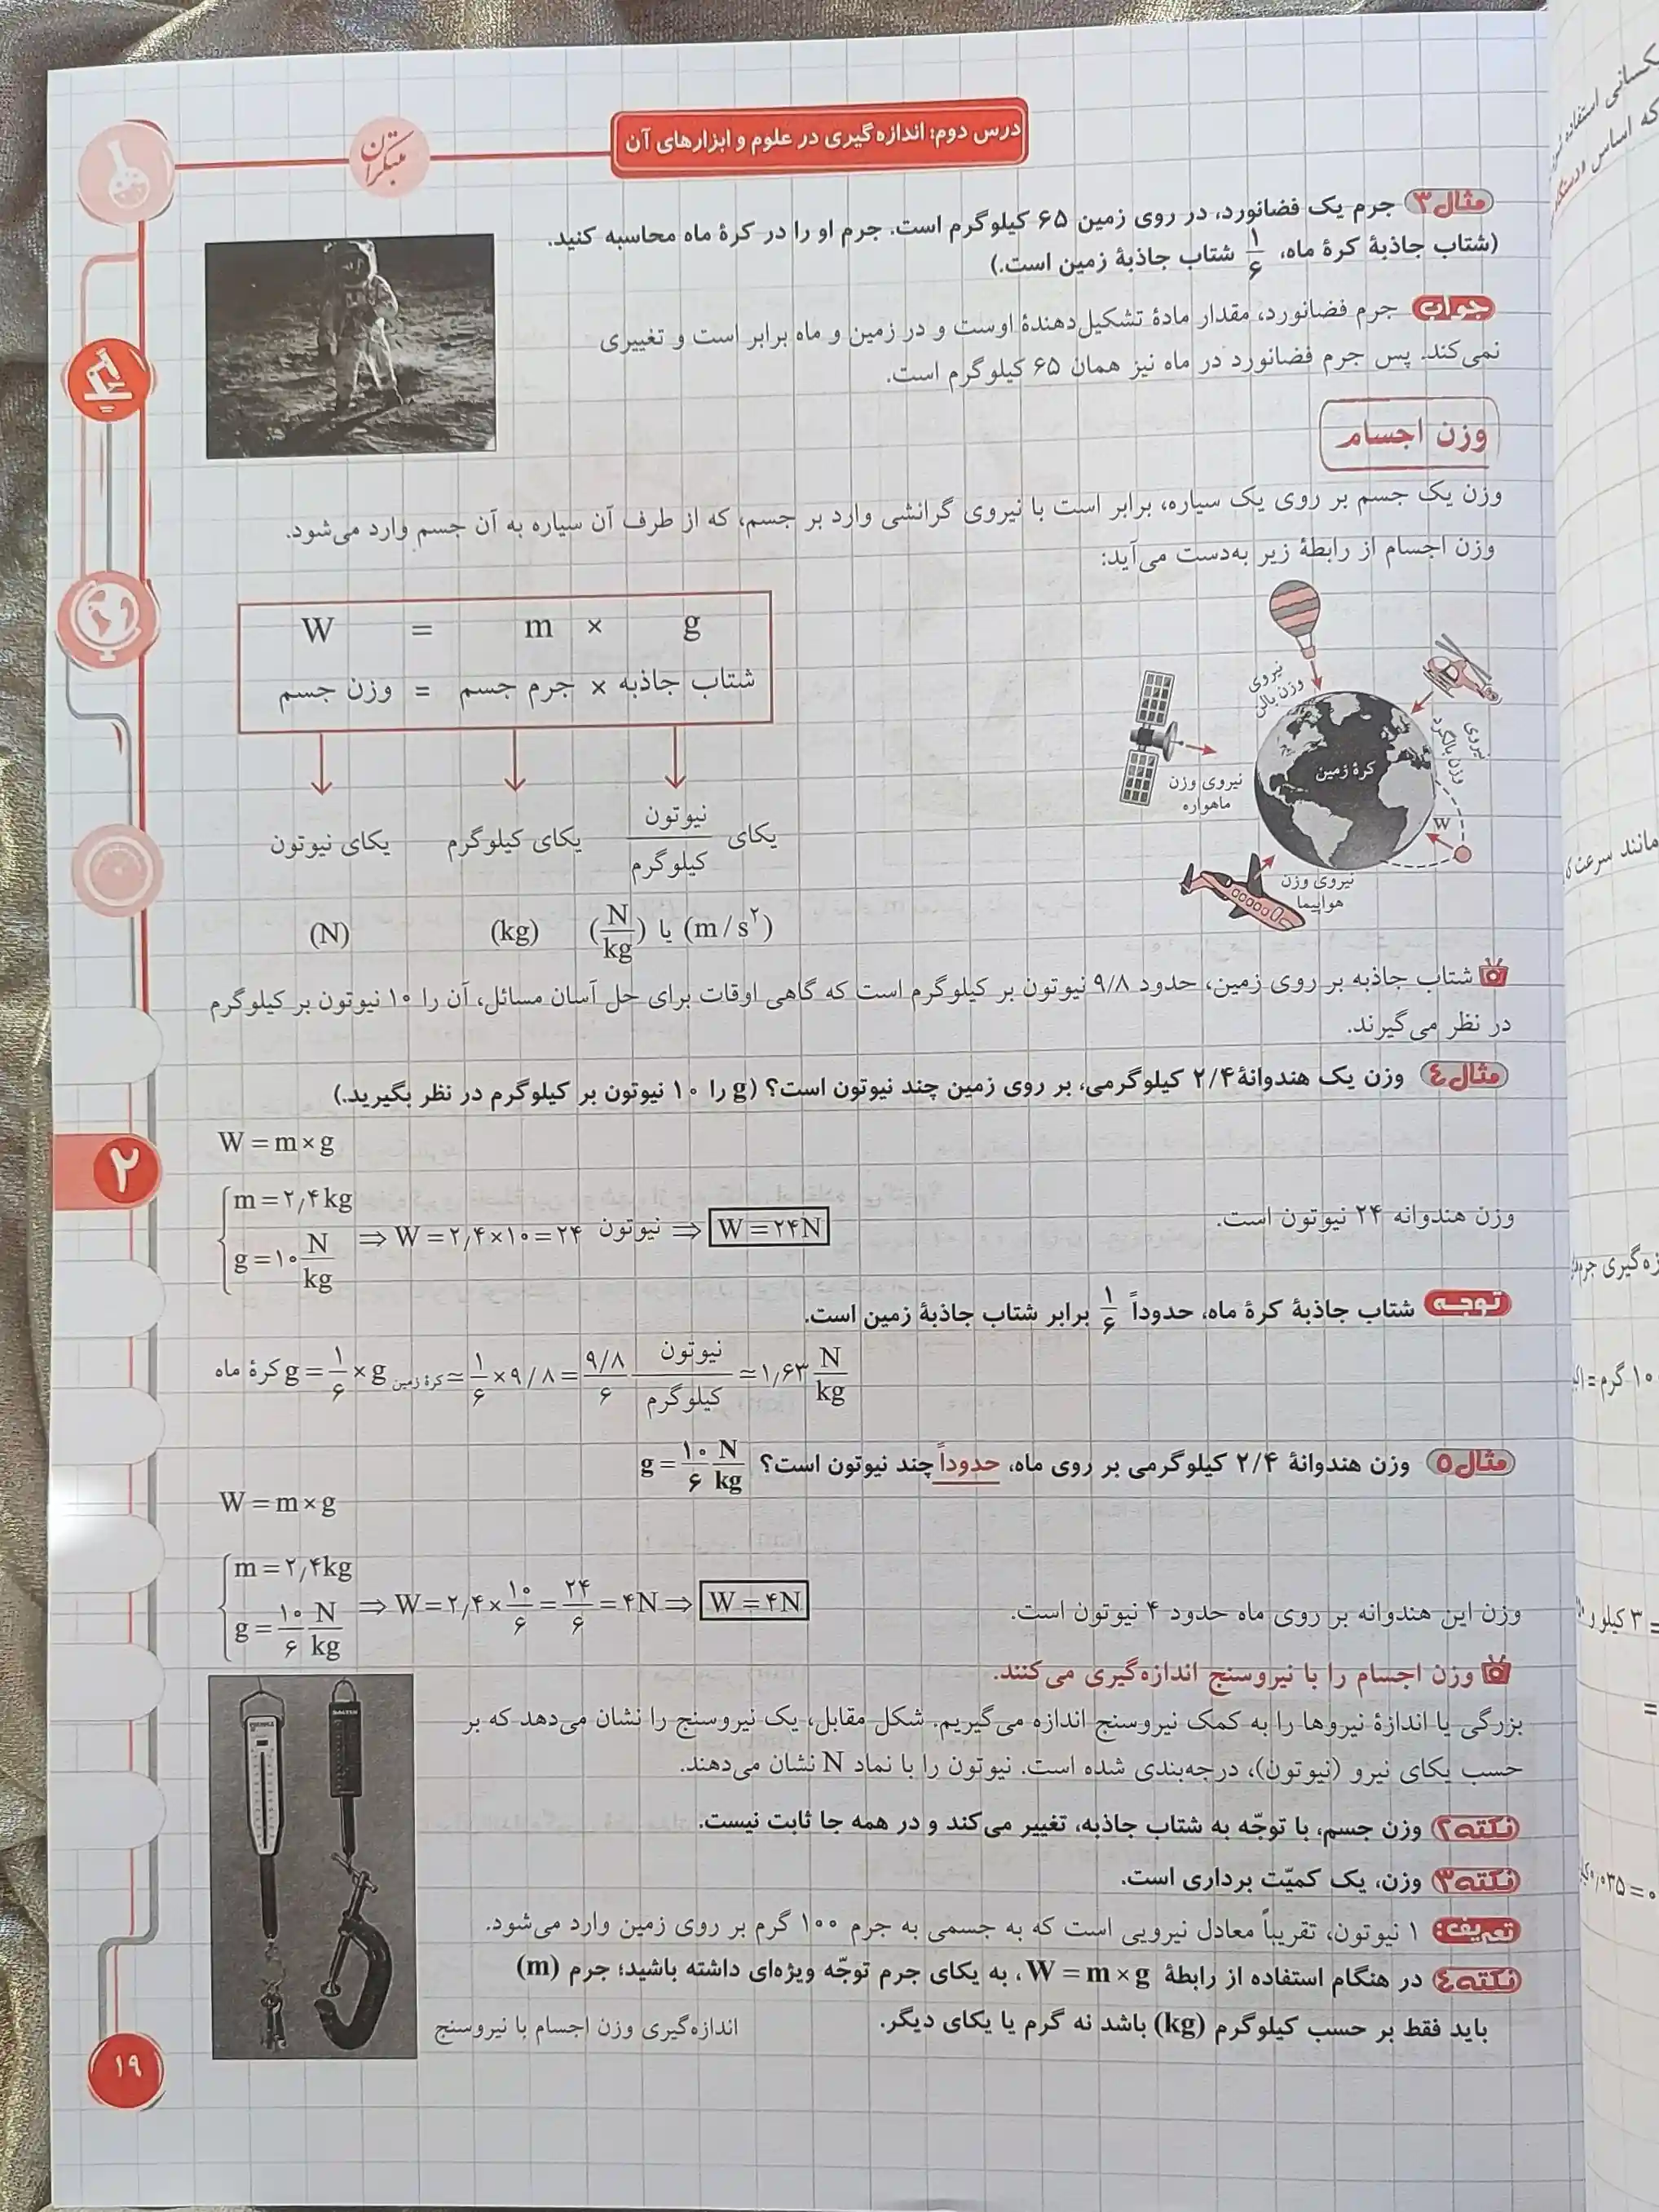 درس دوم: اندازه‌گیری در علوم و ابزارهای آن
مبتکران
مثال ۳ جرم یک فضانورد، در روی زمین ۶۵ کیلوگرم است. جرم او را در کرهٔ ماه محاسبه کنید.
(شتاب جاذبهٔ کرهٔ ماه، ۱/۶ شتاب جاذبهٔ زمین است.)
جواب جرم فضانورد، مقدار مادهٔ تشکیل‌دهندهٔ اوست و در زمین و ماه برابر است و تغییری
نمی‌کند. پس جرم فضانورد در ماه نیز همان ۶۵ کیلوگرم است.
وزن اجسام
وزن یک جسم بر روی یک سیاره، برابر است با نیروی گرانشی وارد بر جسم، که از طرف آن سیاره به آن جسم وارد می‌شود.
وزن اجسام از رابطهٔ زیر به‌دست می‌آید:
W = m × g
وزن جسم = جرم جسم × شتاب جاذبه
یکای نیوتون
یکای کیلوگرم
یکای نیوتون/کیلوگرم
(N)
(kg)
(m/s²) یا (N/kg)
نیروی
وزن بالن
نیروی
وزن بالگرد
کرهٔ زمین
نیروی وزن
ماهواره
W
نیروی وزن
هواپیما
شتاب جاذبه بر روی زمین، حدود ۹/۸ نیوتون بر کیلوگرم است که گاهی اوقات برای حل آسان مسائل، آن را ۱۰ نیوتون بر کیلوگرم
در نظر می‌گیرند.
مثال ۴ وزن یک هندوانهٔ ۲/۴ کیلوگرمی، بر روی زمین چند نیوتون است؟ (g را ۱۰ نیوتون بر کیلوگرم در نظر بگیرید.)
W = m × g
m = ۲/۴ kg
g = ۱۰ N/kg
⇒ W = ۲/۴ × ۱۰ = ۲۴ نیوتون ⇒ W = ۲۴N
وزن هندوانه ۲۴ نیوتون است.
توجه شتاب جاذبهٔ کرهٔ ماه، حدوداً ۱/۶ برابر شتاب جاذبهٔ زمین است.
g کرهٔ ماه = ۱/۶ × g کرهٔ زمین ≃ ۱/۶ × ۹/۸ = ۹/۸ / ۶ نیوتون/کیلوگرم ≃ ۱/۶۳ N/kg
مثال ۵ وزن هندوانهٔ ۲/۴ کیلوگرمی بر روی ماه، حدوداً چند نیوتون است؟ g = ۱۰/۶ N/kg
W = m × g
m = ۲/۴ kg
g = ۱۰/۶ N/kg
⇒ W = ۲/۴ × ۱۰/۶ = ۲۴/۶ = ۴N ⇒ W = ۴N
وزن این هندوانه بر روی ماه حدود ۴ نیوتون است.
وزن اجسام را با نیروسنج اندازه‌گیری می‌کنند.
بزرگی یا اندازهٔ نیروها را به کمک نیروسنج اندازه می‌گیریم. شکل مقابل، یک نیروسنج را نشان می‌دهد که بر
حسب یکای نیرو (نیوتون)، درجه‌بندی شده است. نیوتون را با نماد N نشان می‌دهند.
نکته ۲ وزن جسم، با توجّه به شتاب جاذبه، تغییر می‌کند و در همه جا ثابت نیست.
نکته ۳ وزن، یک کمیّت برداری است.
تعریف: ۱ نیوتون، تقریباً معادل نیرویی است که به جسمی به جرم ۱۰۰ گرم بر روی زمین وارد می‌شود.
نکته ۴ در هنگام استفاده از رابطهٔ W = m × g، به یکای جرم توجّه ویژه‌ای داشته باشید؛ جرم (m)
باید فقط بر حسب کیلوگرم (kg) باشد نه گرم یا یکای دیگر.
اندازه‌گیری وزن اجسام با نیروسنج
۲
۱۹
یکسانی استفاده
که اساس
مانند سرعت
ازه‌گیری جرم
۱۰ گرم =
= ۳ کیلو و